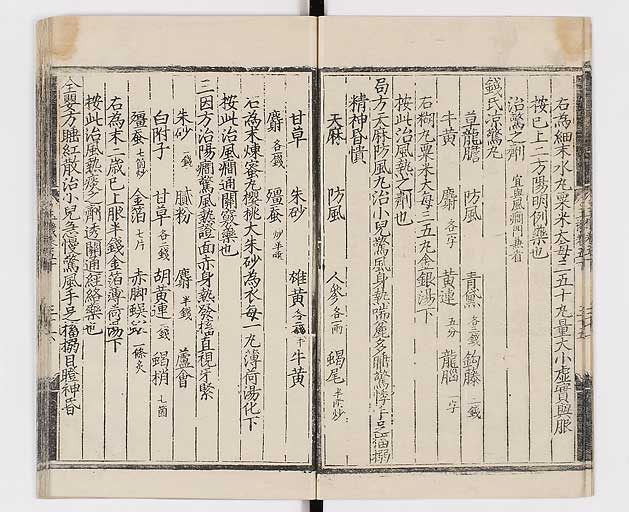 右為細末水丸粟米大每三五十丸量大小虛實與服
按已上二方陽明例藥也
治驚之劑 宜與風癎門兼看
錢氏涼驚丸
草龍膽 防風 青黛 各三錢 鉤藤 二錢
牛黃 麝 各一字 黃連 五分 龍腦 一字
右糊丸粟米大每三五丸金銀湯下
按此治風熱之劑也
局方天麻防風丸治小兒驚風身熱喘麄多睡驚悸手足搐搦
精神昏憒
天麻 防風 人參 各一兩 蝎尾 半兩炒
甘草 朱砂 雄黃 牛黃
麝 各一錢 殭蚕 炒半兩
右為末煉蜜丸櫻桃大朱砂為衣每一丸薄荷湯化下
按此治風癎通關竅藥也
三因方治陽癎驚風熱證面赤身熱發搐直視牙緊
朱砂 一錢 膩粉 麝 半錢 蘆會
白附子 甘草 各二錢 胡黃連 一錢 蝎梢 七箇
殭蚕 七箇炒 金箔 七片 赤脚蜈蚣 一條炙
右為末一歲已上服半錢金箔薄荷湯下
按此治風熱痰之劑透關通經絡藥也
全嬰方睡紅散治小兒急慢驚風手足搐搦目瞪神昏